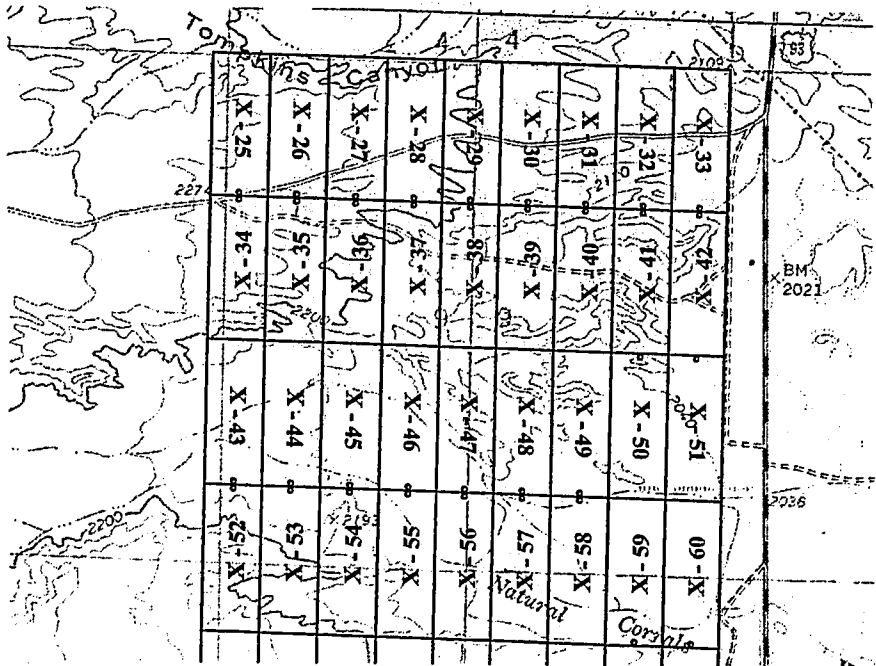 Tompkins Canyon
4 4
93
2109
X-25 X-26 X-27 X-28 X-29 X-30 X-31 X-32 X-33
2274
X-34 X-35 X-36 X-37 X-38 X-39 X-40 X-41 X-42
2200
BM
2021
X-43 X-44 X-45 X-46 X-47 X-48 X-49 X-50 X-51
2036
2200
2193
X-52 X-53 X-54 X-55 X-56 X-57 X-58 X-59 X-60
Natural Corrals